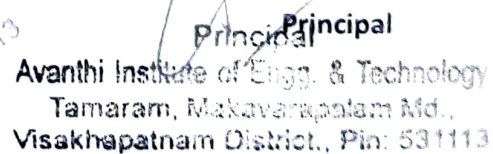 Principal
Principal
Avanthi Institute of Engg. & Technology
Tamaram, Makavarapalem Md.,
Visakhapatnam District., Pin: 531113